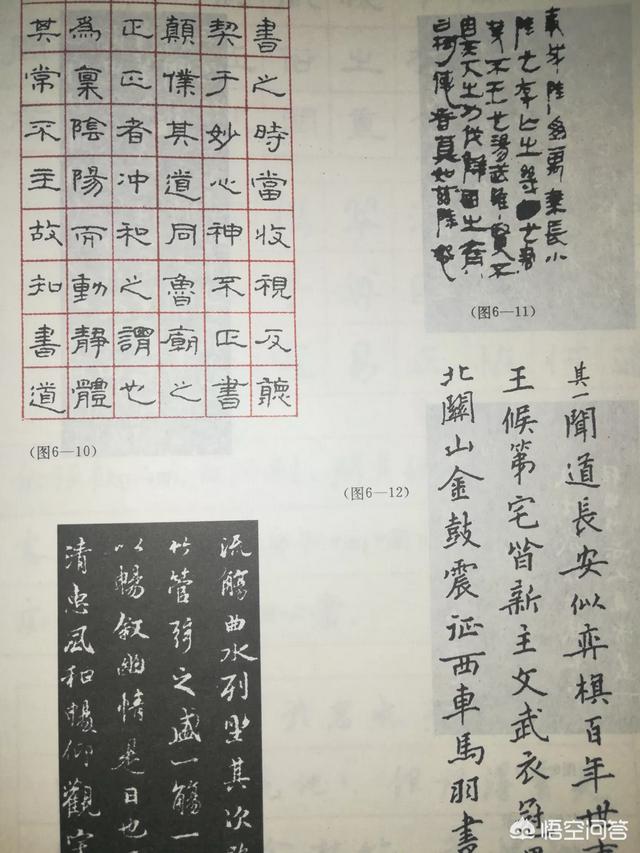 書之時當收視反聽
契于妙心神不正書
顛僕其道同魯廟之
正正者沖和之謂也
為稟陰陽而動靜體
其常不主故知書道
(图6—10)
(图6—11)
其一聞道長安似弈棋百年世
王候第宅皆新主文武衣冠
北關山金鼓震征西車馬羽書
(图6—12)
流觴曲水列坐其次
竹管弦之盛一觴一
以暢敘幽情是日也
清惠風和暢仰觀宇
悟空问答